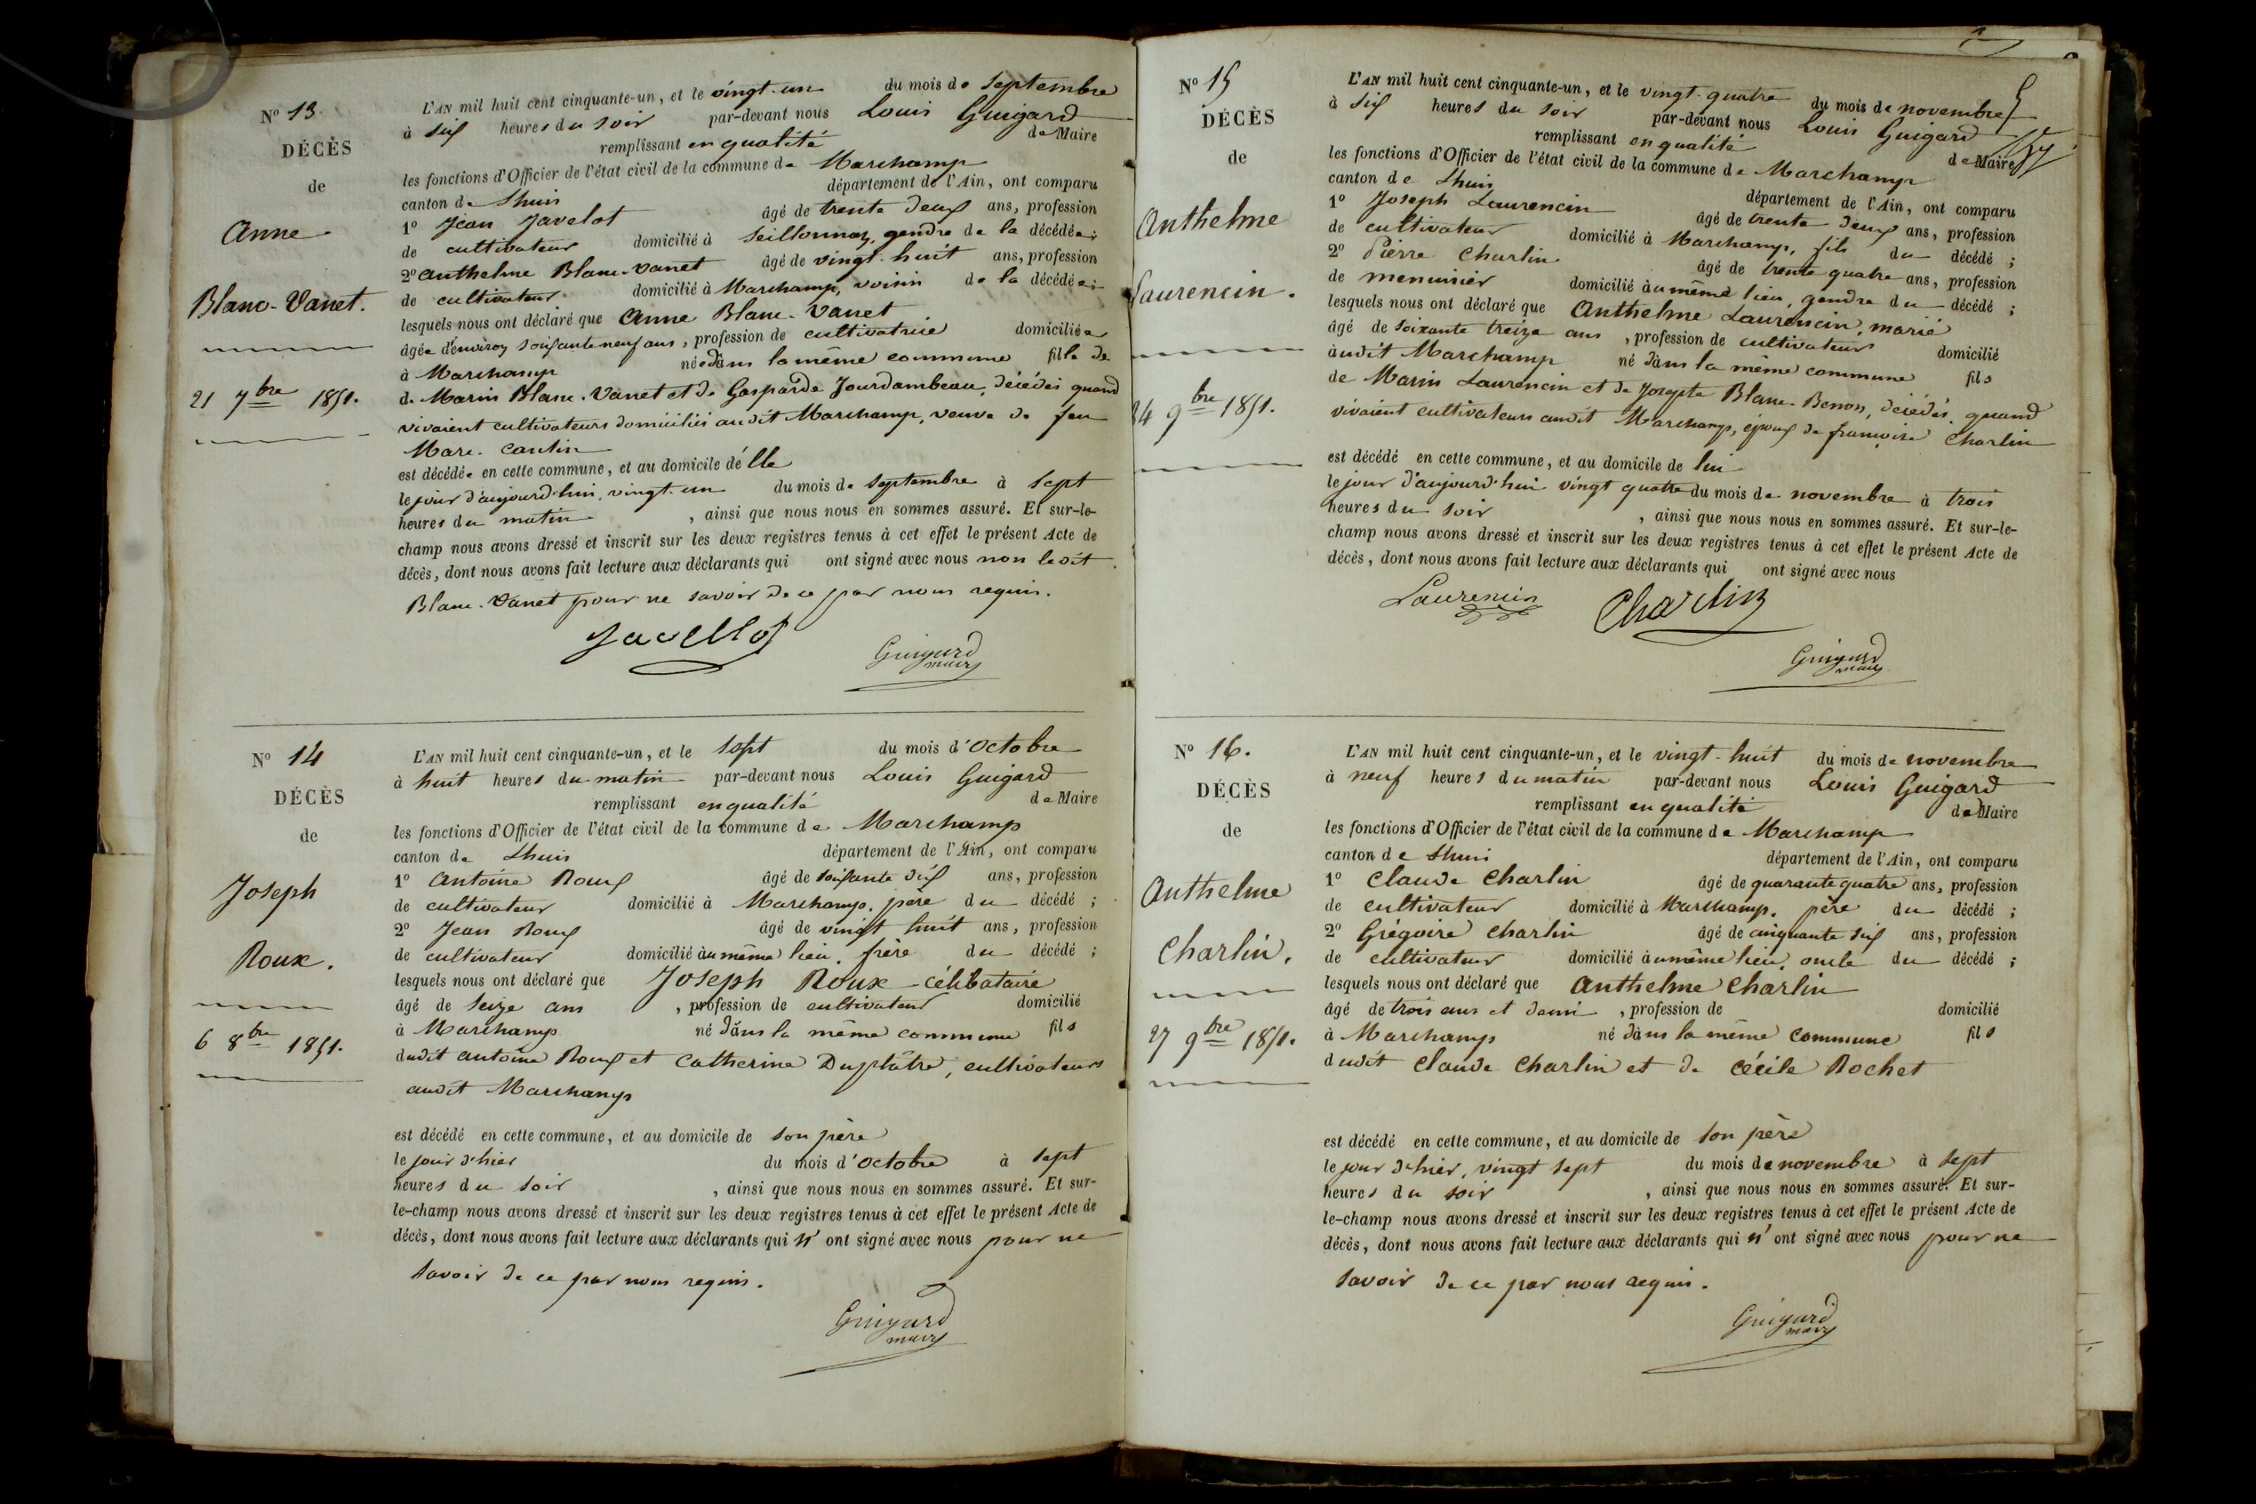 N° 13
DÉCÈS
de
Anne
Blanc-Vanet.
21 7bre 1851.
L'AN mil huit cent cinquante-un, et le vingt-un du mois de septembre
à six heures du soir par-devant nous Louis Guigard
remplissant en qualité de Maire
les fonctions d'Officier de l'état civil de la commune de Marchamp
canton de Lhuis département de l'Ain, ont comparu
1° Jean Javelot âgé de trente deux ans, profession
de cultivateur domicilié à Seillonnaz, gendre de la décédée;
2° Anthelme Blanc-Vanet âgé de vingt-huit ans, profession
de cultivateur domicilié à Marchamp, voisin de la décédée;
lesquels nous ont déclaré que Anne Blanc-Vanet
âgée d'environ soixante neuf ans, profession de cultivatrice domiciliée
à Marchamp née dans la même commune fille de
de Marin Blanc-Vanet et de Gasparde Jourdambeau, décédés quand
vivaient cultivateurs domiciliés audit Marchamp, veuve de feu
Marc Cantin
est décédée en cette commune, et au domicile d'elle
le jour d'aujourd'hui, vingt-un du mois de septembre à sept
heures du matin, ainsi que nous nous en sommes assuré. Et sur-le-
champ nous avons dressé et inscrit sur les deux registres tenus à cet effet le présent Acte de
décès, dont nous avons fait lecture aux déclarants qui ont signé avec nous non ledit
Blanc-Vanet pour ne savoir de ce par nous requis.
Javellot
Guigard
maire
N° 14
DÉCÈS
de
Joseph
Roux.
6 8bre 1851.
L'AN mil huit cent cinquante-un, et le sept du mois d'octobre
à huit heures du matin par-devant nous Louis Guigard
remplissant en qualité de Maire
les fonctions d'Officier de l'état civil de la commune de Marchamp
canton de Lhuis département de l'Ain, ont comparu
1° Antoine Roux âgé de soixante dix ans, profession
de cultivateur domicilié à Marchamp, père du décédé;
2° Jean Roux âgé de vingt huit ans, profession
de cultivateur domicilié au même lieu, frère du décédé;
lesquels nous ont déclaré que Joseph Roux célibataire
âgé de seize ans, profession de cultivateur domicilié
à Marchamp né dans la même commune fils
dudit Antoine Roux et Catherine Duplâtre, cultivateurs
audit Marchamp
est décédé en cette commune, et au domicile de son père
le jour d'hier du mois d'octobre à sept
heures du soir, ainsi que nous nous en sommes assuré. Et sur-
le-champ nous avons dressé et inscrit sur les deux registres tenus à cet effet le présent Acte de
décès, dont nous avons fait lecture aux déclarants qui n'ont signé avec nous pour ne
savoir de ce par nous requis.
Guigard
maire
N° 15
DÉCÈS
de
Anthelme
Laurencin.
24 9bre 1851.
L'AN mil huit cent cinquante-un, et le vingt-quatre du mois de novembre
à six heures du soir par-devant nous Louis Guigard
remplissant en qualité de Maire
les fonctions d'Officier de l'état civil de la commune de Marchamp
canton de Lhuis département de l'Ain, ont comparu
1° Joseph Laurencin âgé de trente deux ans, profession
de cultivateur domicilié à Marchamp, fils du décédé;
2° Pierre Charlin âgé de trente quatre ans, profession
de menuisier domicilié au même lieu, gendre du décédé;
lesquels nous ont déclaré que Anthelme Laurencin, marié
âgé de soixante treize ans, profession de cultivateur domicilié
audit Marchamp né dans la même commune fils
de Marin Laurencin et de Josepte Blanc-Benon, décédés, quand
vivaient cultivateurs audit Marchamp, époux de françoise Charlin
est décédé en cette commune, et au domicile de lui
le jour d'aujourd'hui vingt quatre du mois de novembre à trois
heures du soir, ainsi que nous nous en sommes assuré. Et sur-le-
champ nous avons dressé et inscrit sur les deux registres tenus à cet effet le présent Acte de
décès, dont nous avons fait lecture aux déclarants qui ont signé avec nous
Laurencin Charlin
Guigard
maire
N° 16.
DÉCÈS
de
Anthelme
Charlin.
27 9bre 1851.
L'AN mil huit cent cinquante-un, et le vingt-huit du mois de novembre
à neuf heures du matin par-devant nous Louis Guigard
remplissant en qualité de Maire
les fonctions d'Officier de l'état civil de la commune de Marchamp
canton de Lhuis département de l'Ain, ont comparu
1° Claude Charlin âgé de quarante quatre ans, profession
de cultivateur domicilié à Marchamp, père du décédé;
2° Grégoire Charlin âgé de cinquante six ans, profession
de cultivateur domicilié au même lieu, oncle du décédé;
lesquels nous ont déclaré que Anthelme Charlin
âgé de trois ans et demi, profession de domicilié
à Marchamp né dans la même commune fils
dudit Claude Charlin et de Cécile Rochet
est décédé en cette commune, et au domicile de son père
le jour d'hier, vingt sept du mois de novembre à sept
heures du soir, ainsi que nous nous en sommes assuré. Et sur-
le-champ nous avons dressé et inscrit sur les deux registres tenus à cet effet le présent Acte de
décès, dont nous avons fait lecture aux déclarants qui n'ont signé avec nous pour ne
savoir de ce par nous requis.
Guigard
maire